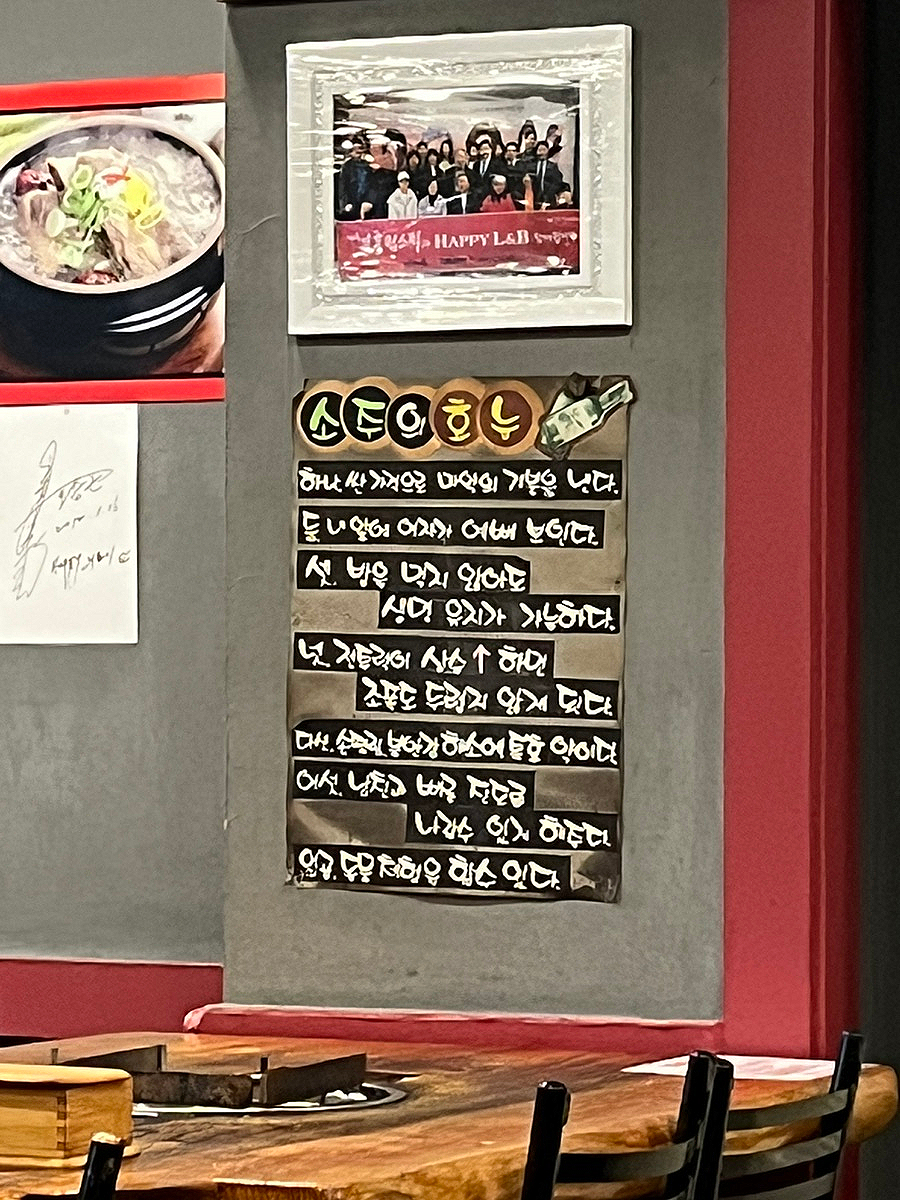 HAPPY L&B
소주의 효능
하나, 싼 가격으로 마약의 기분을 낸다.
둘, 내 앞에 여자가 예뻐 보인다.
셋, 밥을 먹지 않아도
생명 유지가 가능하다.
넷, 전투력이 상승↑하면
조폭도 두렵지 않게 된다.
다섯, 손떨림, 불안감 해소에 특효약이다.
여섯, 남친과 빠른 진도를
나갈수 있게 해준다.
일곱, 동물 체험을 할수 있다.